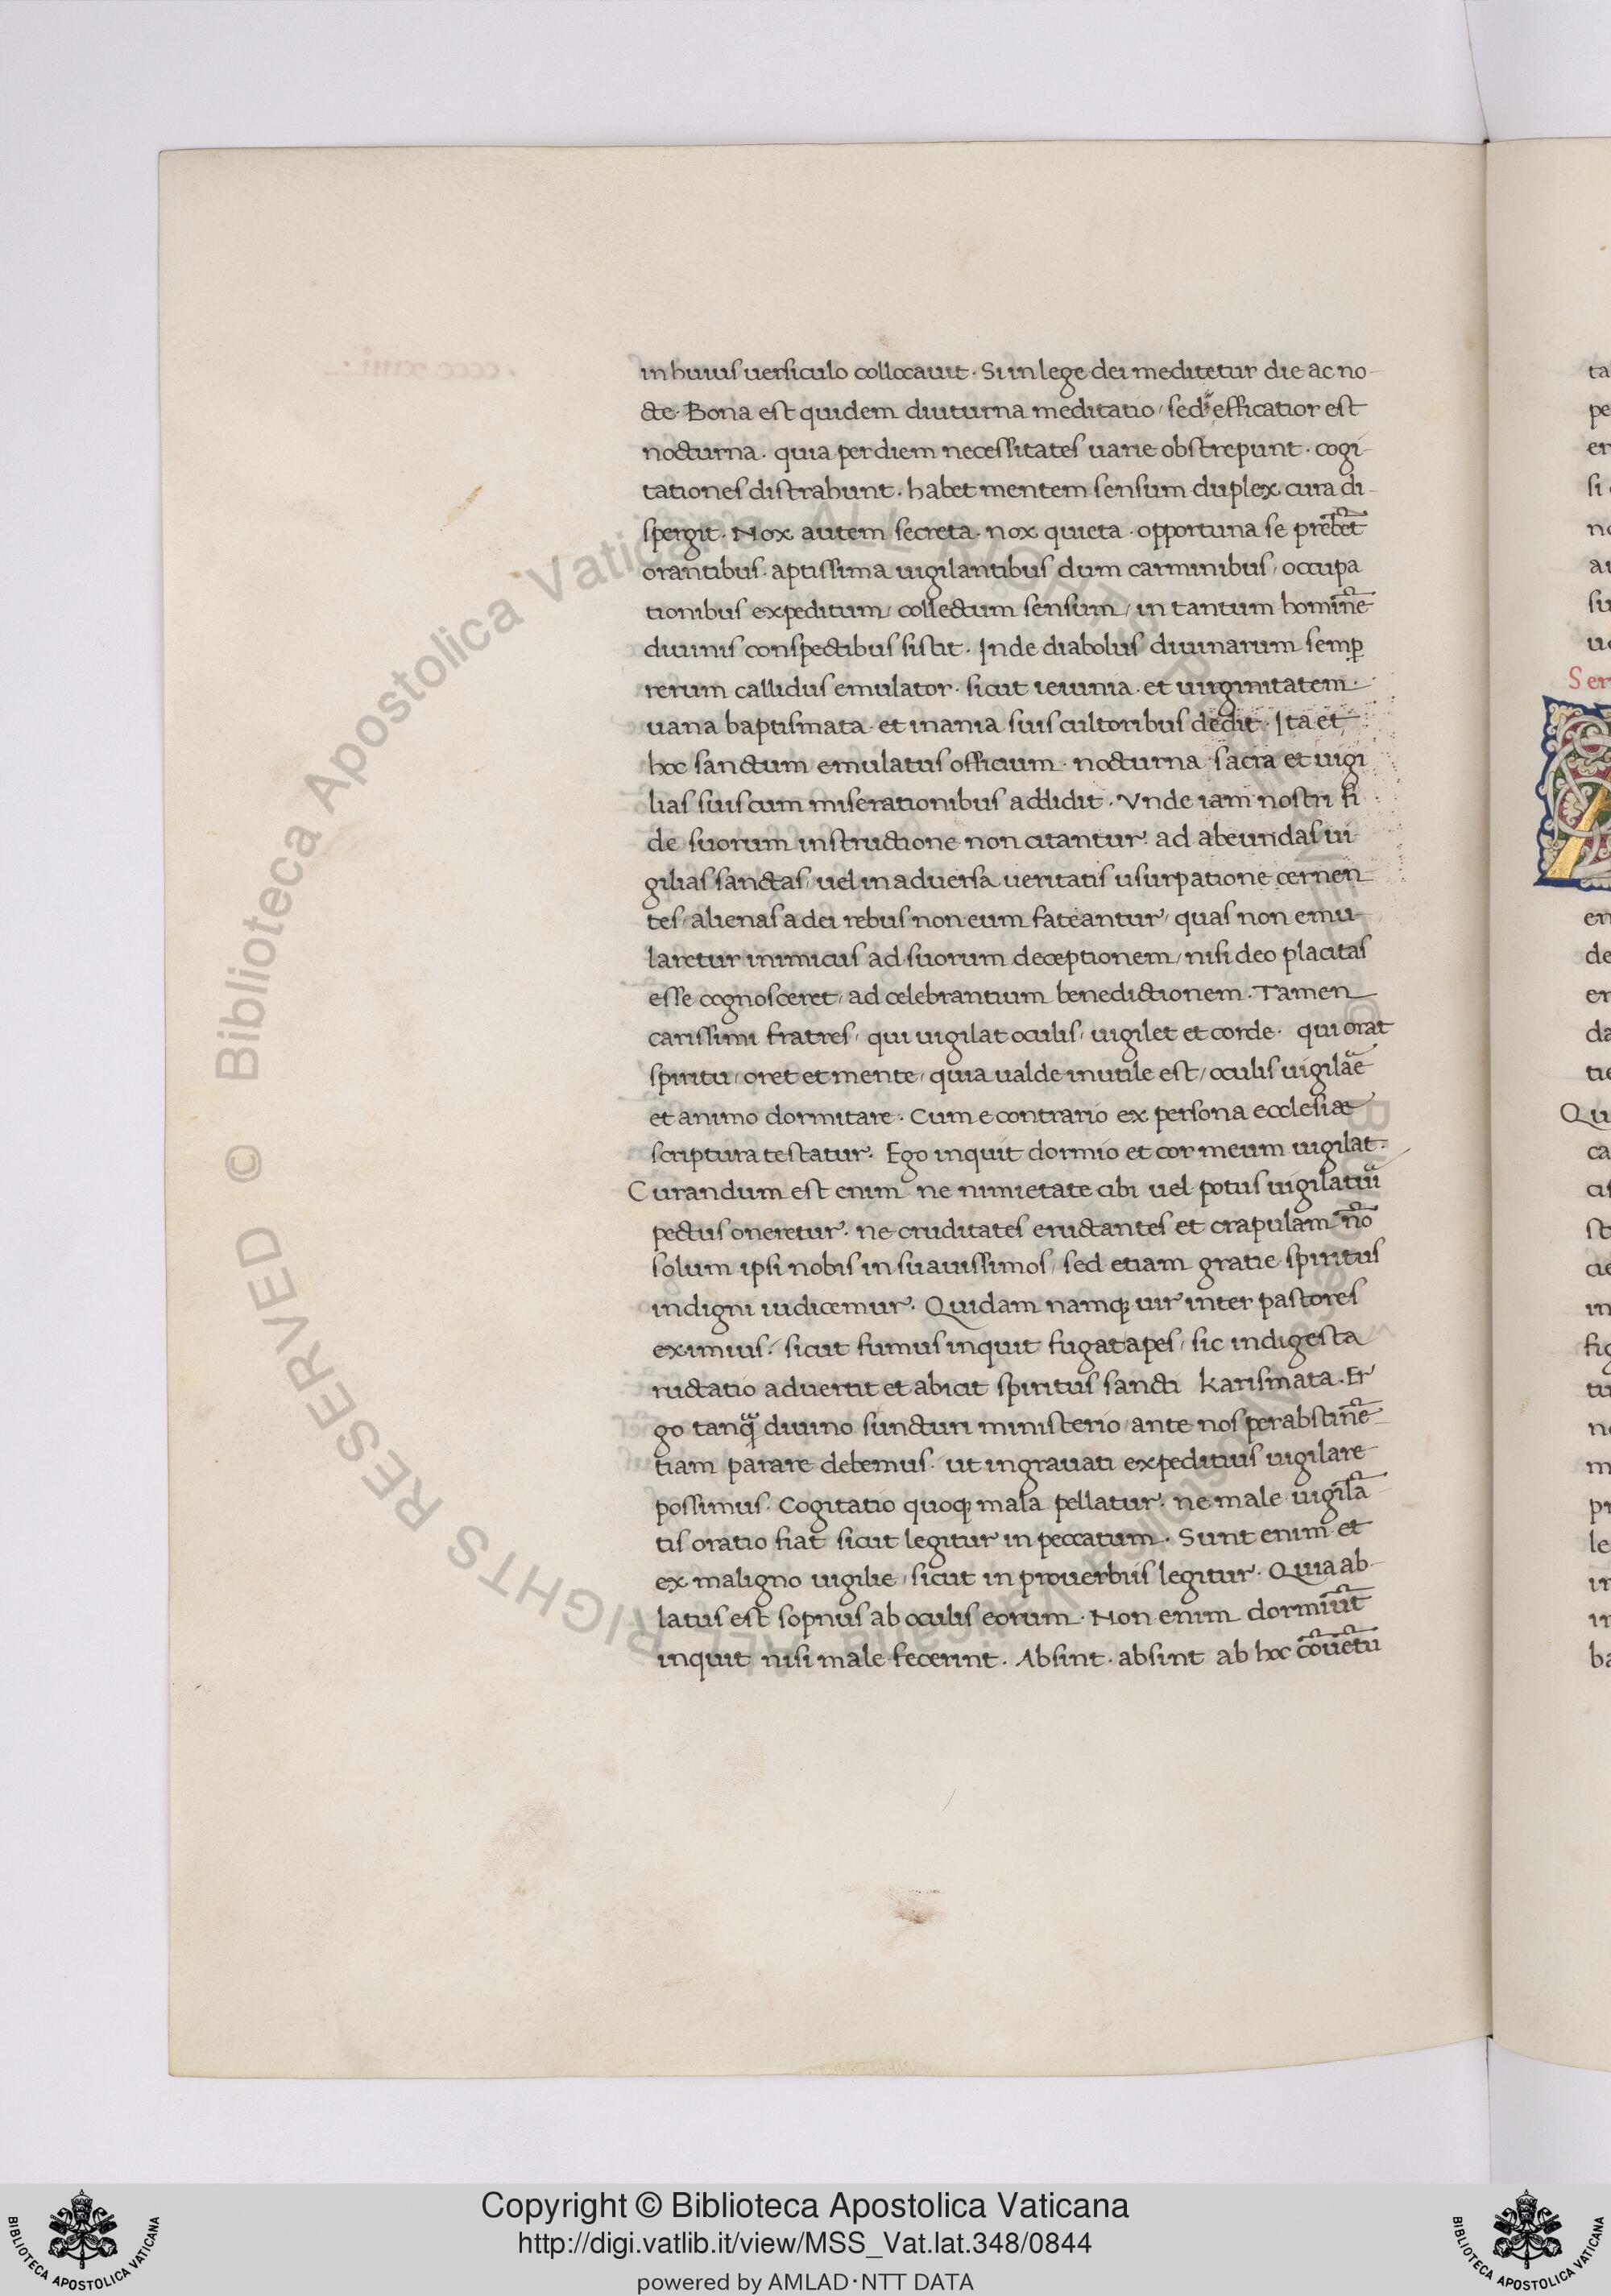 in huius uersiculo collocauit. Si in lege dei meditetur die ac no-
cte. Bona est quidem diuturna meditatio, sed efficatior est
nocturna. quia per diem necessitates uarie obstrepunt. cogi-
tationes distrahunt. habet mentem sensum duplex cura di-
spergit. Nox autem secreta. nox quieta. opportuna se prebet
orantibus. aptissima uigilantibus dum carminibus, occupa
tionibus expeditum, collectum sensum, in tantum hominē
diuinis conspectibus sistit. Inde diabolus diuinarum semꝑ
rerum callidus emulator. sicut ieiunia. et uirginitatem.
uana baptismata. et inania suis cultoribus dedit. Ita et
hoc sanctum emulatus officium. nocturna sacra et uigi
lias suis cum miserationibus addidit. Vnde iam nostri fi
de suorum instructione non citantur. ad abeundas ui
gilias sanctas, uel in aduersa ueritatis usurpatione cernen
tes, alienas a dei rebus non eum fateantur, quas non emu-
laretur inimicus ad suorum deceptionem, nisi deo placitas
esse cognosceret, ad celebrantium benedictionem. Tamen
carissimi fratres, qui uigilat oculis, uigilet et corde. qui orat
spiritu, oret et mente, quia ualde inutile est, oculis uigilāe
et animo dormitare. Cum e contrario ex persona ecclesiæ
scriptura testatur. Ego inquit dormio et cor meum uigilat.
Curandum est enim ne nimietate cibi uel potus uigilatiū
pectus oneretur. ne cruditates eructantes et crapulam nō
solum ipsi nobis in suauissimos, sed etiam gratie spiritus
indigni iudicemur. Quidam namqꝫ uir inter pastores
eximius. sicut fumus inquit fugat apes, sic indigesta
ructatio aduertit et abicit spiritus sancti karismata. Er
go tanq̄ diuino functuri ministerio, ante nos per abstinē
tiam parare debemus. ut ingrauati expeditius uigilare
possimus. Cogitatio quoqꝫ mala pellatur. ne male uigilā
tis oratio fiat sicut legitur in peccatum. Sunt enim et
ex maligno uigilie, sicut in prouerbiis legitur. Quia ab-
latus est sopnus ab oculis eorum. Non enim dormiūt
inquit nisi male fecerint. Absint. absint ab hoc cōuētu
ta
pe
er
si
no
au
su
Ser
en
de
er
da
tie
Qu
ca
cis
st
cie
in
fig
tu
ne
m
pr
le
in
in
ba
© Biblioteca Apostolica Vaticana ALL RIGHTS RESERVED
Copyright © Biblioteca Apostolica Vaticana
http://digi.vatlib.it/view/MSS_Vat.lat.348/0844
powered by AMLAD·NTT DATA
BIBLIOTECA APOSTOLICA VATICANA
BIBLIOTECA APOSTOLICA VATICANA